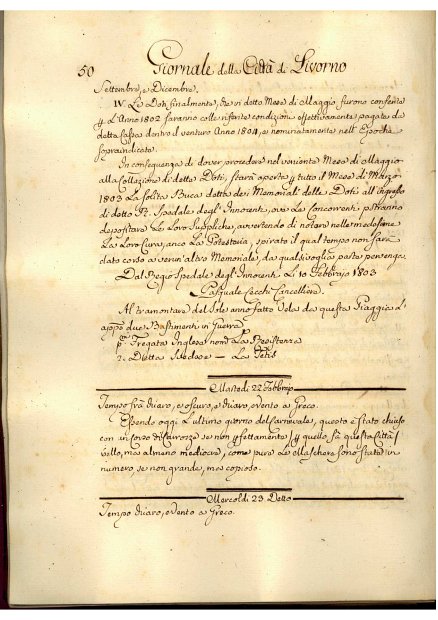 50 Giornale della Città di Livorno
Settembre, e Dicembre.
IV. Le Doti finalmente, che nel detto Mese di Maggio furono conferite
l'Anno 1802 saranno colle riferite condizioni effettivamente pagate da
detta Cassa dentro il venturo Anno 1804, e nominatamente nell'Epoche
sopraindicate.
In conseguenza di dover procedere nel Mese di Maggio
alla Collazione di dette Doti, sarà aperta tutto il Mese di Marzo
1803 La solita Buca detta dei Memoriali delle Doti all'Ingresso
di detto R. Spedale degl'Innocenti, ove Le Concorrenti potranno
depositare Le Loro Suppliche, avvertendo di notare nelle medesime
La Loro Cura, anco La Potesteria, spirato il qual tempo non sarà
dato corso a verun'altro Memoriale, da qualsivoglia parte pervenga.
Dal Regio Spedale degl'Innocenti Li 10 Febbrajo 1803
Pasquale Cecchi Cancelliere.
Al tramontare del Sole anno fatto Vela da questa Piaggia
due Bastimenti in Guerra
Fregata Inglese La
2. Detta La Tetis
Martedì 22 Febbrajo
Tempo frà Chiaro, e oscuro, e Chiaro, e Vento a Greco.
Essendo oggi L'ultimo giorno del Carnevale, questo è stato chiuso
con un Corso di Carrozze se non quello, fà questa Città
bello, ma almeno mediocre, come pure Le Maschere sono state in
numero, se non grande, ma copioso.
Mercoldì 23 Detto
Tempo Chiaro, e Vento a Greco.